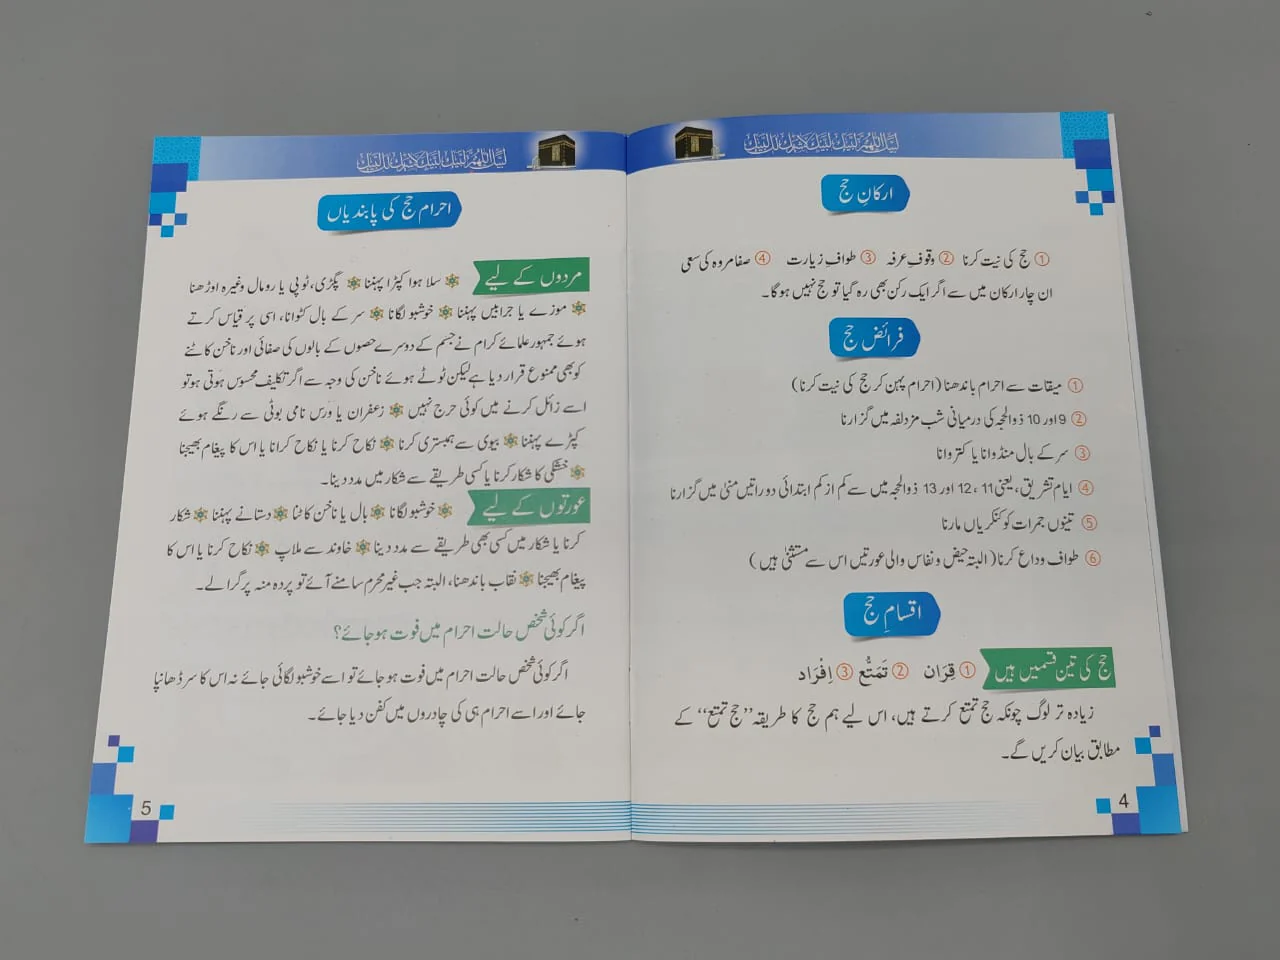 لبیک اللھم لبیک لبیک لا شریک لک لبیک
ارکانِ حج
① حج کی نیت کرنا ② وقوفِ عرفہ ③ طوافِ زیارت ④ صفا مروہ کی سعی
ان چار ارکان میں سے اگر ایک رکن بھی رہ گیا تو حج نہیں ہوگا۔
فرائض حج
① میقات سے احرام باندھنا (احرام پہن کر حج کی نیت کرنا)
② 9 اور 10 ذوالحجہ کی درمیانی شب مزدلفہ میں گزارنا
③ سر کے بال منڈوانا یا کتروانا
④ ایام تشریق، یعنی 11، 12 اور 13 ذوالحجہ میں سے کم از کم ابتدائی دو راتیں منیٰ میں گزارنا
⑤ تینوں جمرات کو کنکریاں مارنا
⑥ طواف وداع کرنا (البتہ حیض و نفاس والی عورتیں اس سے مستثنیٰ ہیں)
اقسامِ حج
حج کی تین قسمیں ہیں ① قِرَان ② تَمَتُّع ③ اِفْرَاد
زیادہ تر لوگ چونکہ حج تمتع کرتے ہیں، اس لیے ہم حج کا طریقہ ’’حج تمتع‘‘ کے
مطابق بیان کریں گے۔
4
لبیک اللھم لبیک لبیک لا شریک لک لبیک
احرام حج کی پابندیاں
مردوں کے لیے سلا ہوا کپڑا پہننا پگڑی، ٹوپی یا رومال وغیرہ اوڑھنا
موزے یا جرابیں پہننا خوشبو لگانا سر کے بال کٹوانا، اسی پر قیاس کرتے
ہوئے جمہور علمائے کرام نے جسم کے دوسرے حصوں کے بالوں کی صفائی اور ناخن کاٹنے
کو بھی ممنوع قرار دیا ہے لیکن ٹوٹے ہوئے ناخن کی وجہ سے اگر تکلیف محسوس ہوتی ہو تو
اسے زائل کرنے میں کوئی حرج نہیں زعفران یا ورس نامی بوٹی سے رنگے ہوئے
کپڑے پہننا بیوی سے ہمبستری کرنا نکاح کرنا یا نکاح کرانا یا اس کا پیغام بھیجنا
خشکی کا شکار کرنا یا کسی طریقے سے شکار میں مدد دینا۔
عورتوں کے لیے خوشبو لگانا بال یا ناخن کاٹنا دستانے پہننا شکار
کرنا یا شکار میں کسی بھی طریقے سے مدد دینا خاوند سے ملاپ نکاح کرنا یا اس کا
پیغام بھیجنا نقاب باندھنا، البتہ جب غیر محرم سامنے آئے تو پردہ منہ پر گرا لے۔
اگر کوئی شخص حالت احرام میں فوت ہو جائے؟
اگر کوئی شخص حالت احرام میں فوت ہو جائے تو اسے خوشبو لگائی جائے نہ اس کا سر ڈھانپا
جائے اور اسے احرام ہی کی چادروں میں کفن دیا جائے۔
5